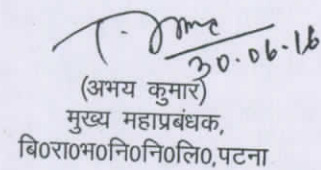 30.06.16
(अभय कुमार)
मुख्य महाप्रबंधक,
बि0रा0भ0नि0नि0लि0,पटना